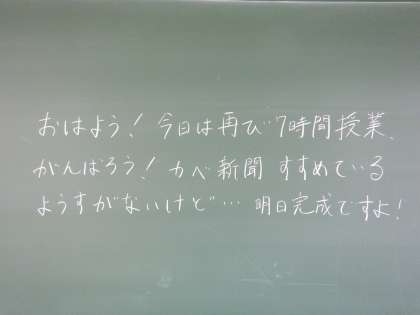 おはよう！今日は再び7時間授業、
がんばろう！カベ新聞すすめている
ようすがないけど…明日完成ですよ！